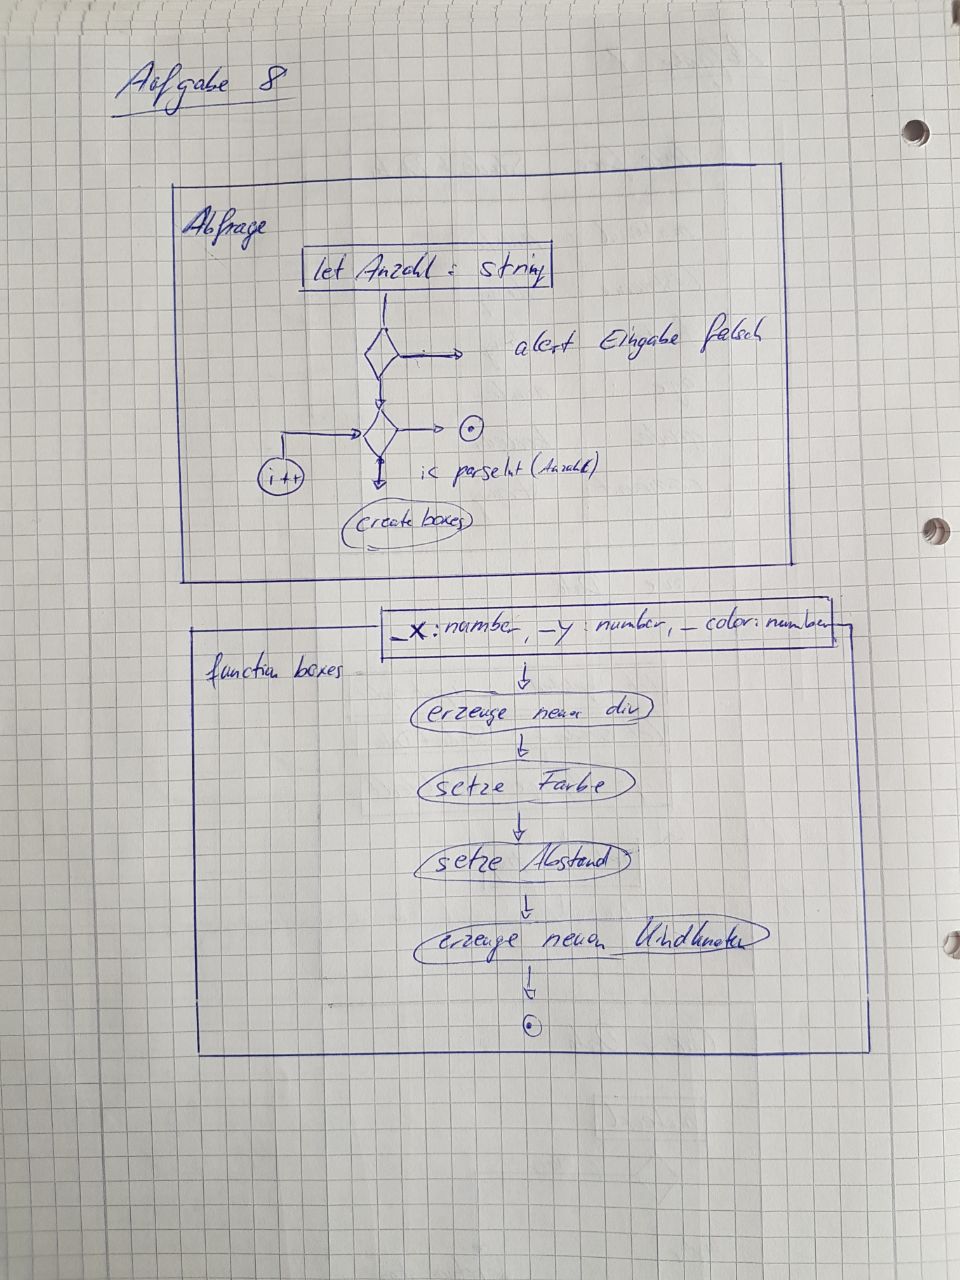 Aufgabe 8
Abfrage
let Anzahl : string
alert Eingabe falsch
i++
i< parseInt (Anzahl)
create boxes
_x: number, _y: number, _color: number
function boxes
erzeuge neuen div
setze Farbe
setze Abstand
erzeuge neuen Kindknoten